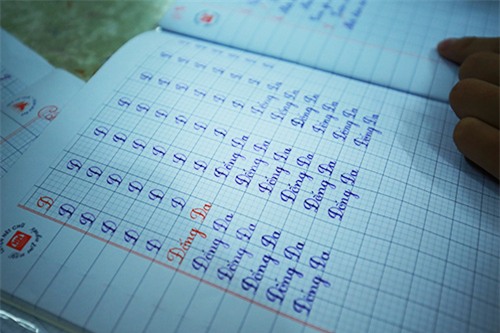 Đ Đ Đ Đ Đ Đ Đ
Đ Đ Đ Đ Đ Đ Đ
Đ Đ Đ Đ Đ Đ Đ
Đ Đ Đ Đ Đ Đ Đ
Đ Đ Đ Đ Đ Đ Đ
Đ Đ Đ Đ Đ Đ Đ
Đống Đa Đống Đa Đống Đa
Đống Đa Đống Đa Đống Đa
Đống Đa Đống Đa Đống Đa
Đống Đa Đống Đa Đống Đa
Đống Đa Đống Đa Đống Đa
Đống Đa Đống Đa Đống Đa